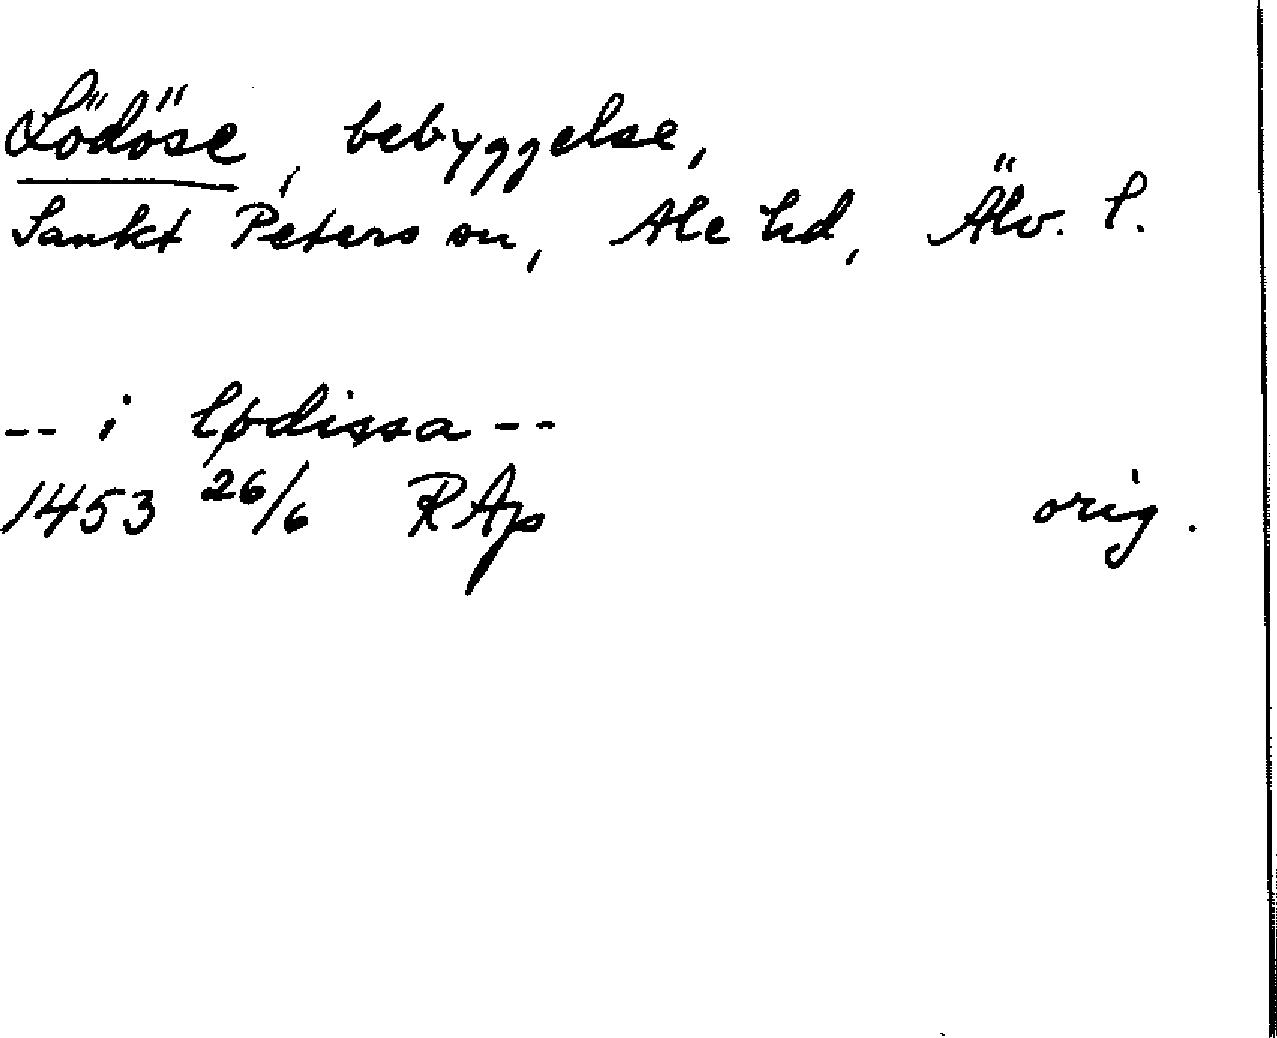 Lödöse, bebyggelse,
Sankt Peters sn, Ale hd, Älv. l.
-- i lødissa --
1453 26/6 RAp orig.